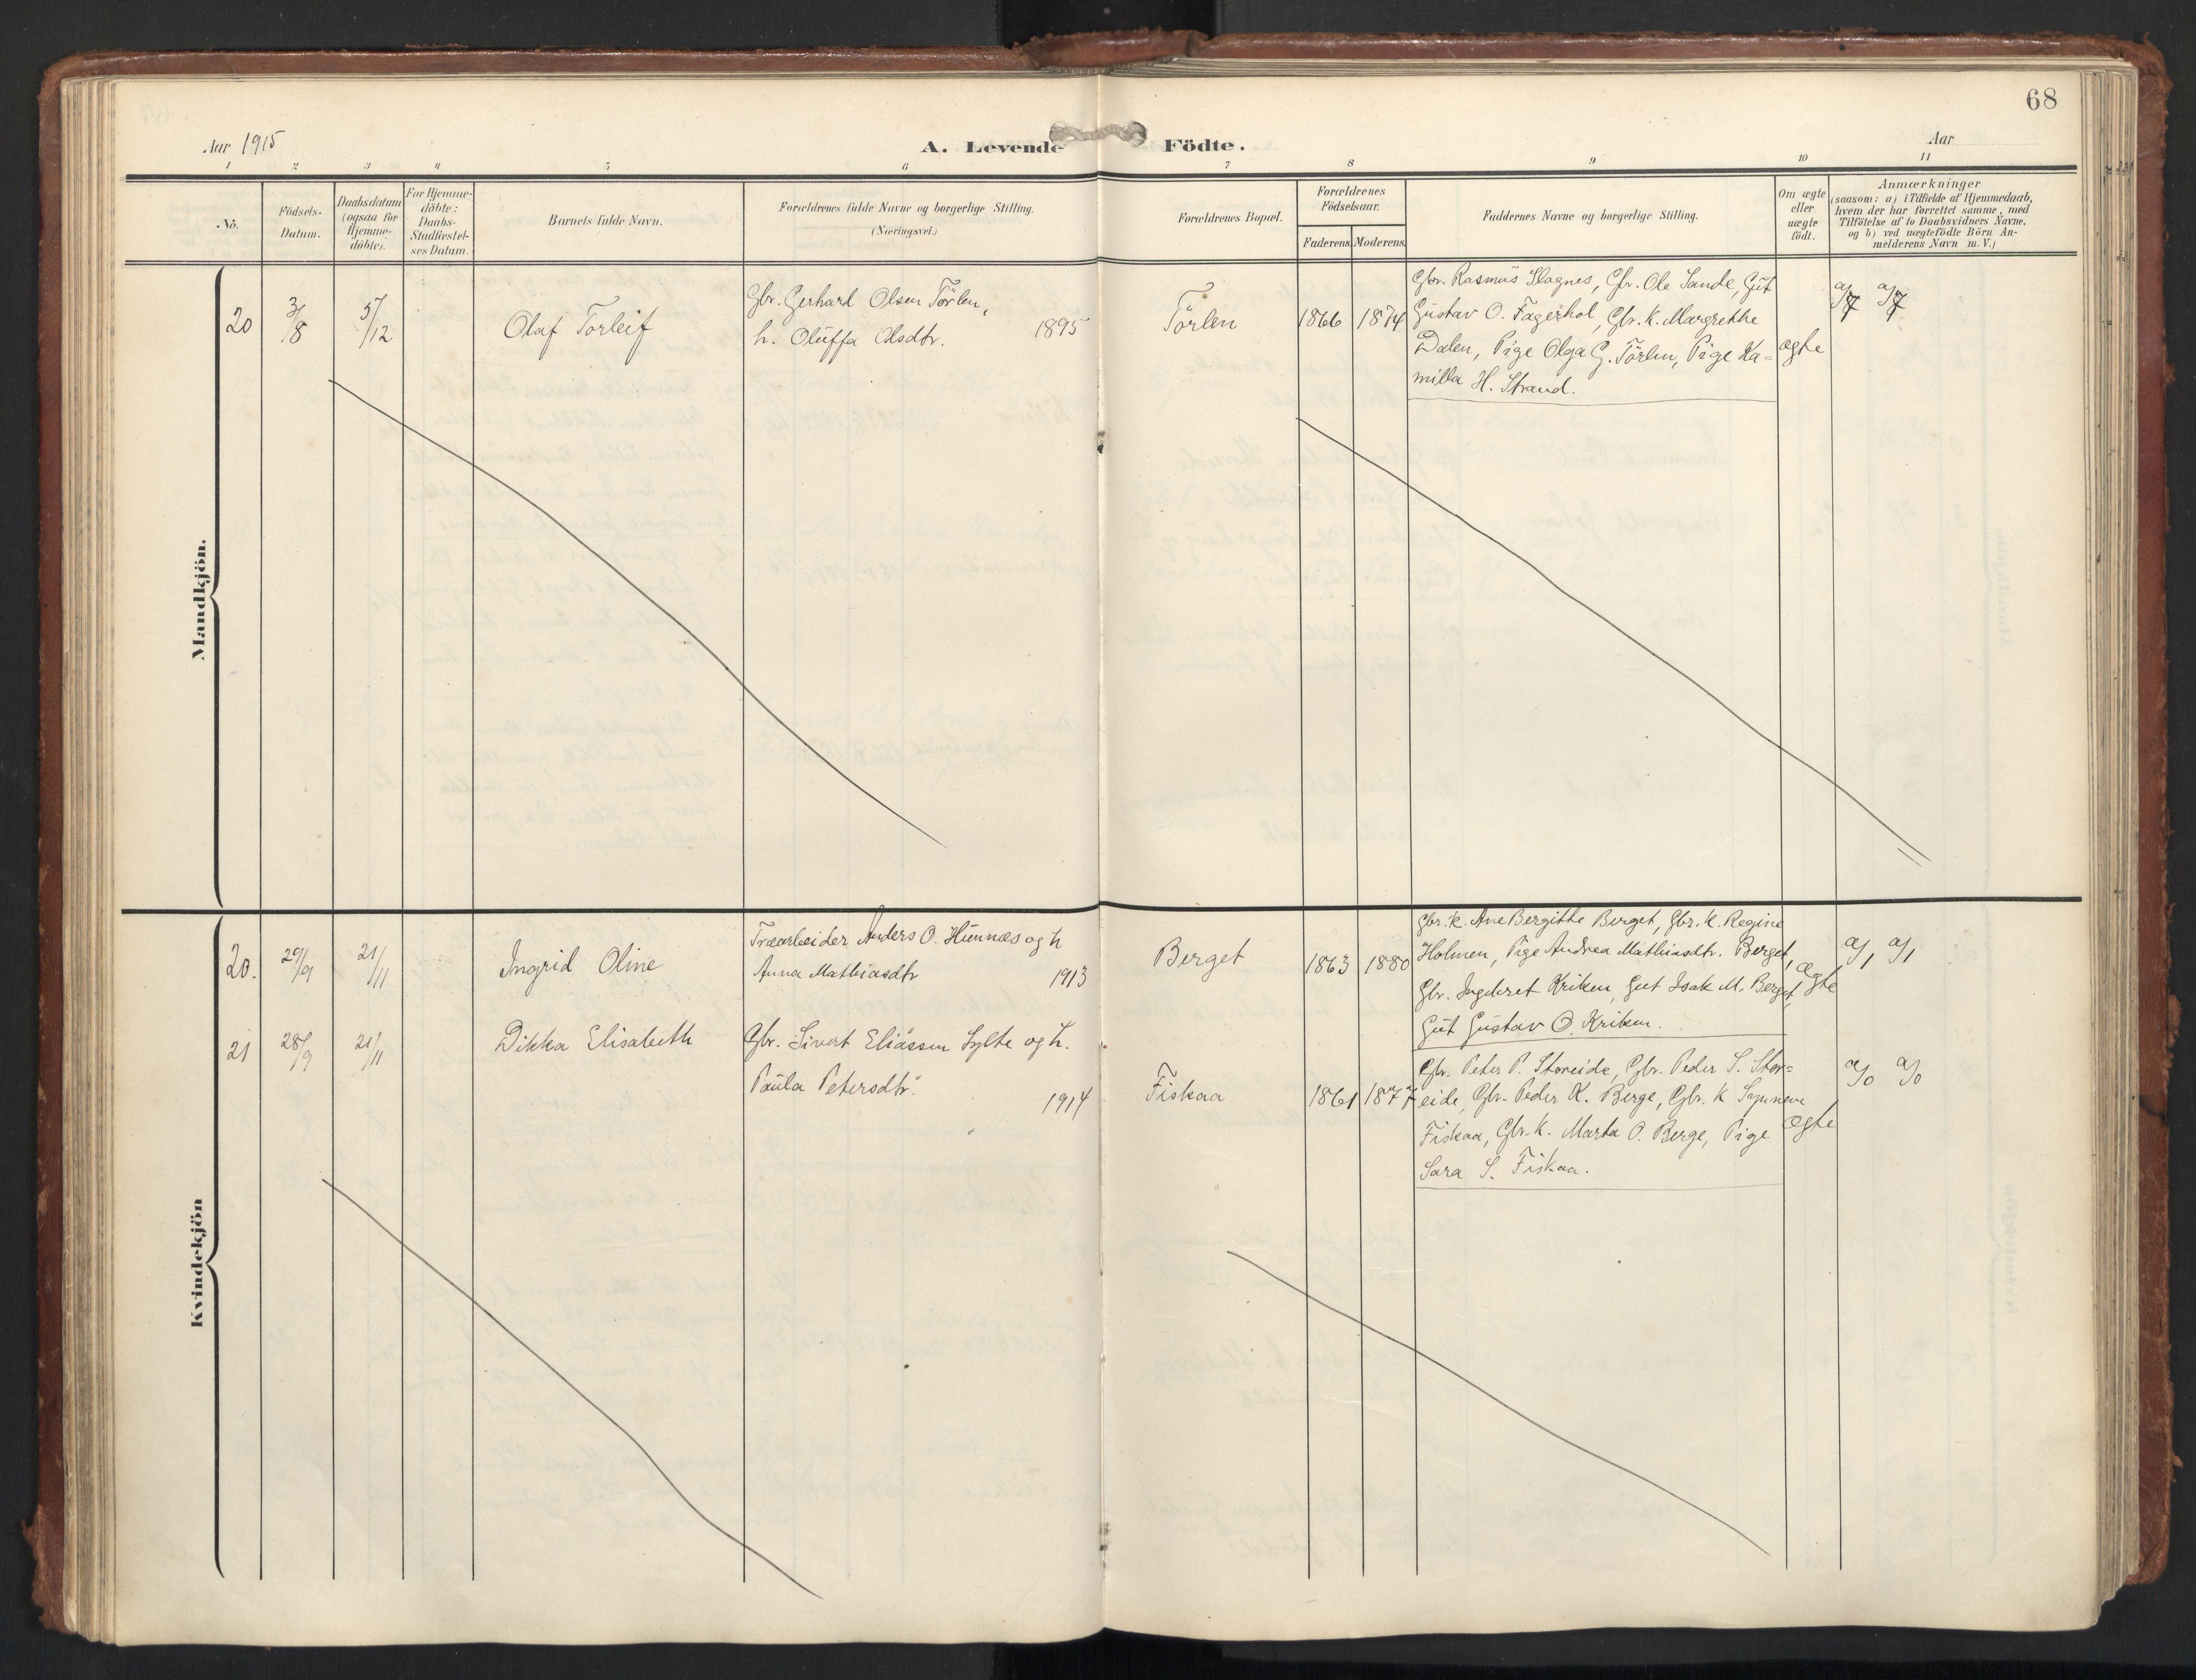 68
Aar 1915
A. Levende Födte.
Aar
1 2 3 4 5 6 7 8 9 10 11
No.
Födsels-
Datum.
Daabsdatum
(ogsaa for
Hjemme-
döbte).
For Hjemme-
döbte:
Daabs-
Stadfestel-
ses Datum.
Barnets fulde Navn.
Forældrenes fulde Navne og borgerlige Stilling.
(Næringsvei.)
Forældrenes Bopæl.
Forældrenes
Födselsaar.
Faderens. Moderens.
Faddernes Navne og borgerlige Stilling.
Om ægte
eller
uægte
födt.
Anmærkninger
(saasom: a) i Tilfælde af Hjemmedaab,
hvem der har forrettet samme, med
Tilföielse af to Daabsvidners Navne,
og b) ved uægtefödte Börn An-
melderens Navn m. V.)
Mandkjön.
20
3/8
5/12
Olaf Torleif
Gbr. Gerhard Olsen Törlen,
h. Oluffa Olsdtr. 1895
Törlen
1866 1874
Gbr. Rasmus Slagnes, Gbr. Ole Sande, Gut
Gustav O. Fagerhol, Gbr. K. Margrethe
Dalen, Pige Olga G. Törlen, Pige Ka=
milla H. Strand.
ægte
a/7 a/7
Kvindekjön
20.
29/9
21/11
Ingrid Oline
Træarbeider Anders O. Hunnæs og h
Anna Mathiasdtr
1913
Berget
1863 1880
Gbr. k. Ane Bergithe Berget, Gbr. K. Regine
Holmen, Pige Andrea Mathiasdtr. Berget,
Gbr. Ingebret Kriken, Gut Isak M. Berget,
Gut Gustav O. Kriken.
ægte
a/1 a/1
21
28/9
21/11
Dikka Elisabeth
Gbr. Sivert Eliassen Sylte og h.
Paula Petersdtr.
1914
Fiskaa
1861 1877
Gbr. Peter P. Storeide, Gbr. Peder S. Stor=
eide, Gbr. Peder K. Berge, Gbr. K Synneve
Fiskaa, Gbr. K. Marta O. Berge, Pige
Sara S. Fiskaa.
ægte
a/0 a/0